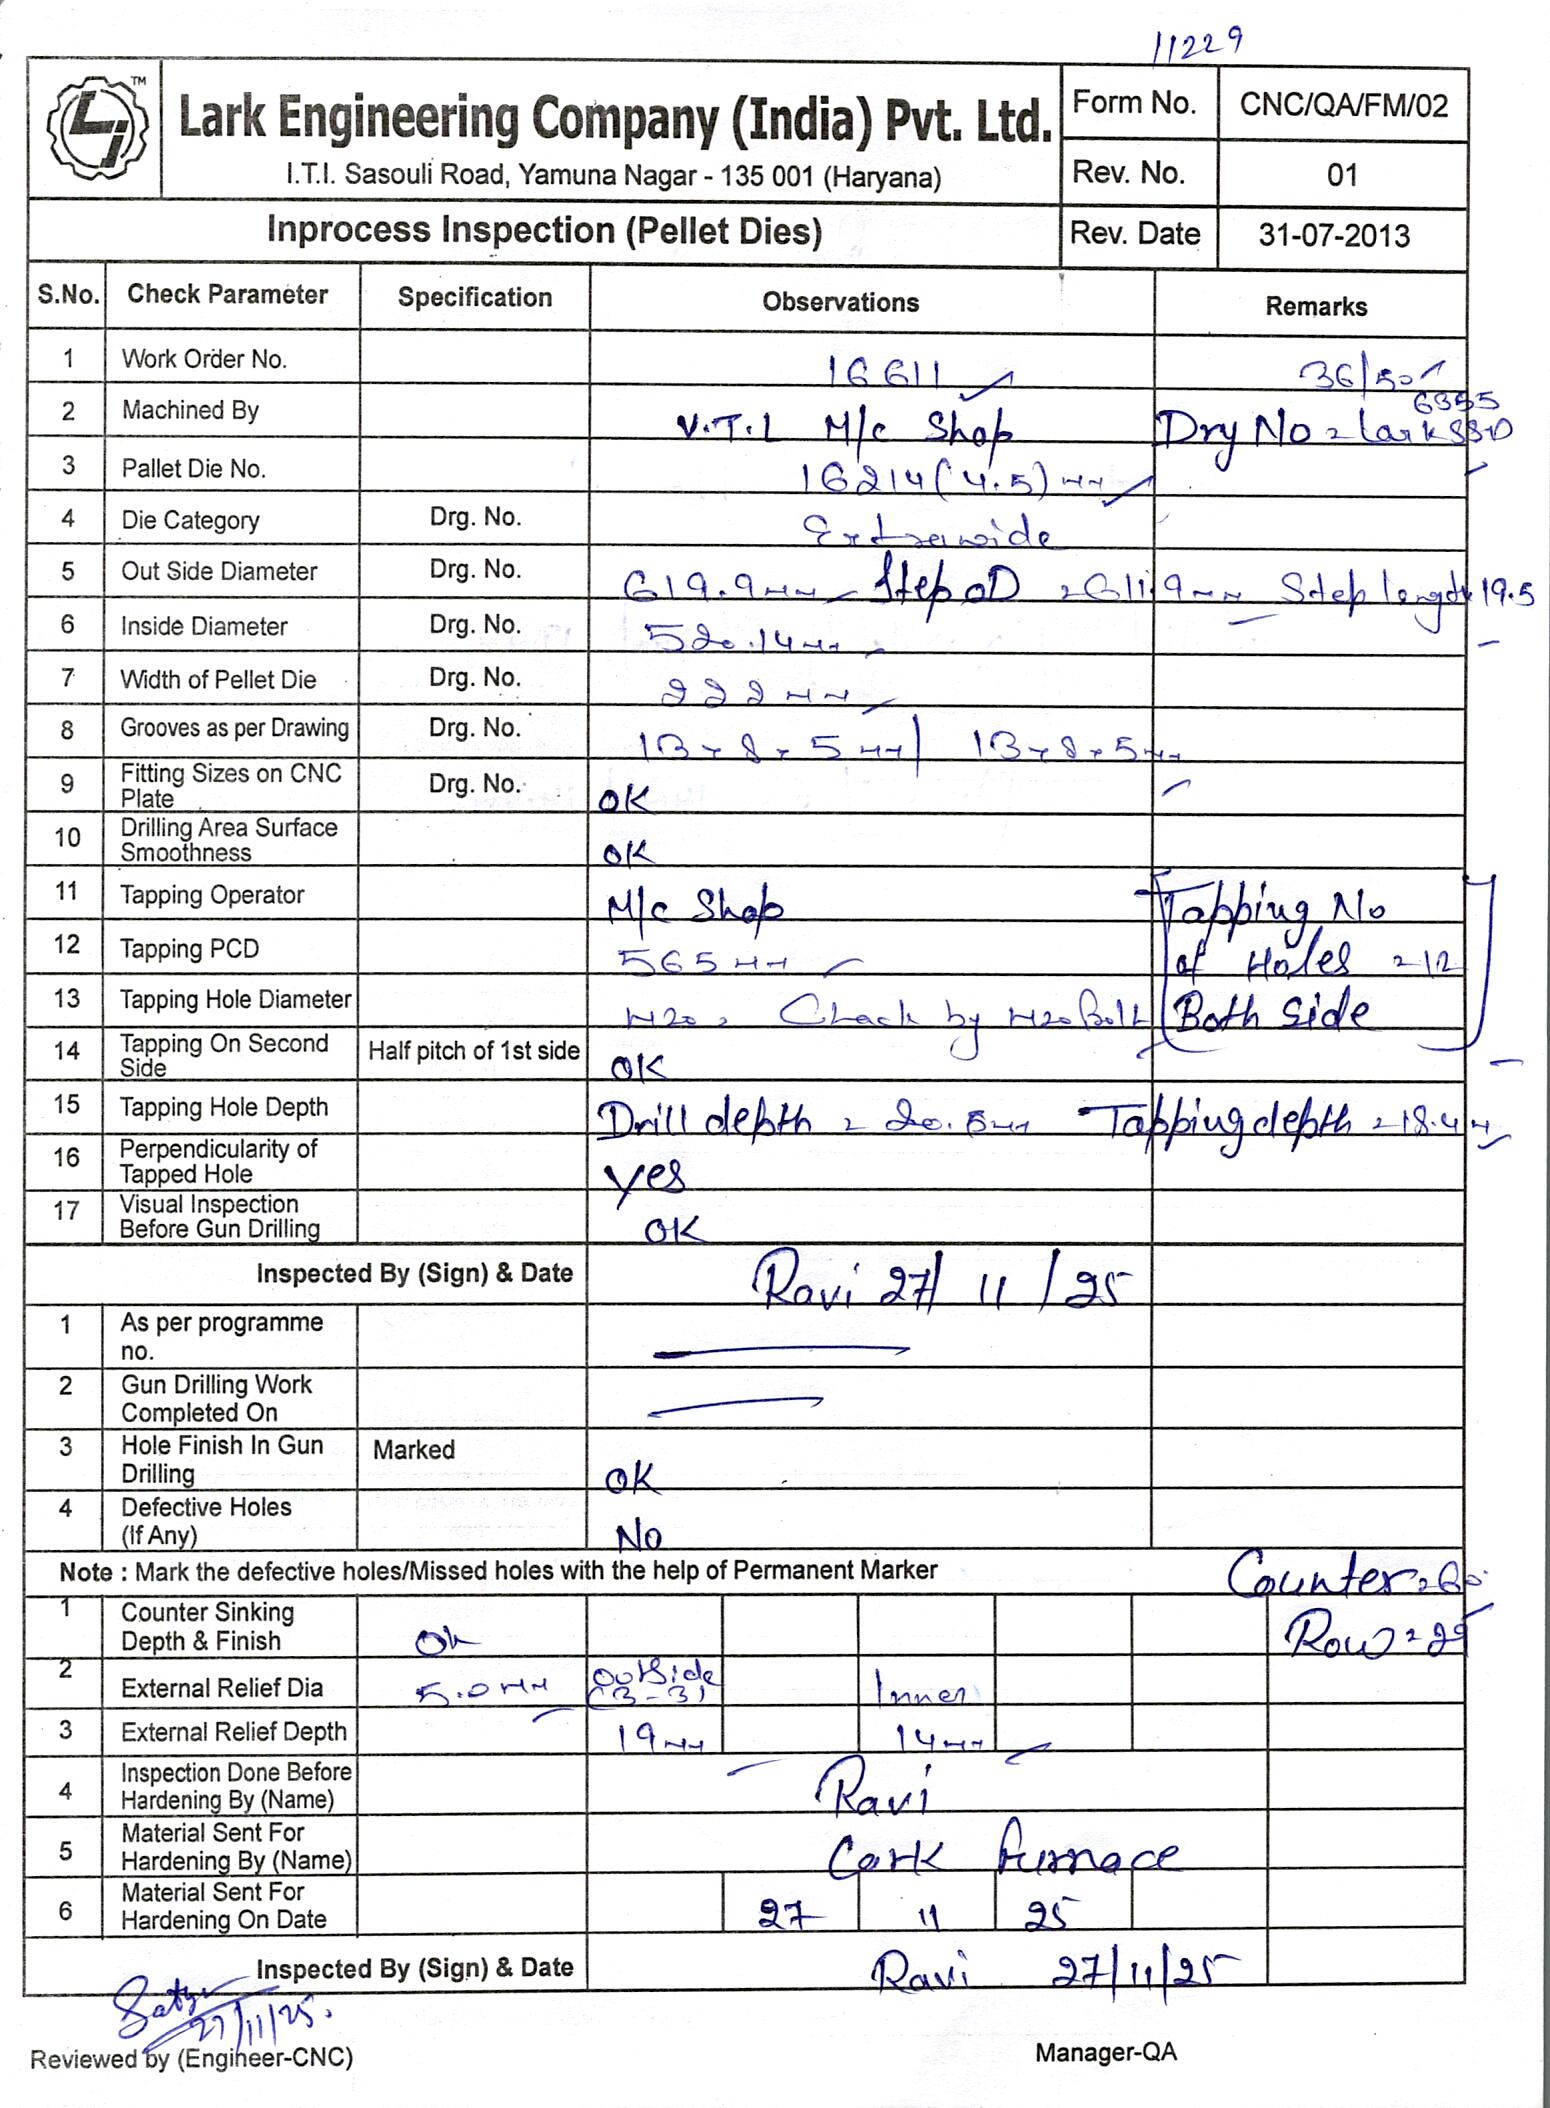 11229
TM
Lark Engineering Company (India) Pvt. Ltd.
I.T.I. Sasouli Road, Yamuna Nagar - 135 001 (Haryana)
Form No. CNC/QA/FM/02
Rev. No. 01
Inprocess Inspection (Pellet Dies)
Rev. Date 31-07-2013
S.No. Check Parameter Specification Observations Remarks
1 Work Order No. 16611 36/50
2 Machined By V.T.L M/c Shop Drg No = Lark SSD 6355
3 Pallet Die No. 16214 (4.5) mm
4 Die Category Drg. No. Extrawide
5 Out Side Diameter Drg. No. 619.9mm Step OD = 611.9mm Step length 19.5
6 Inside Diameter Drg. No. 520.14mm
7 Width of Pellet Die Drg. No. 222mm
8 Grooves as per Drawing Drg. No. 13 x 8 x 5 mm | 13 x 8 x 5mm
9 Fitting Sizes on CNC Plate Drg. No. OK
10 Drilling Area Surface Smoothness OK
11 Tapping Operator M/c Shop Tapping No
12 Tapping PCD 565mm of Holes = 12
13 Tapping Hole Diameter M20, Chack by M20 Bolt Both Side
14 Tapping On Second Side Half pitch of 1st side OK
15 Tapping Hole Depth Drill depth = 20.5mm Tapping depth = 18.4
16 Perpendicularity of Tapped Hole yes
17 Visual Inspection Before Gun Drilling OK
Inspected By (Sign) & Date Ravi 27/11/25
1 As per programme no.
2 Gun Drilling Work Completed On
3 Hole Finish In Gun Drilling Marked OK
4 Defective Holes (If Any) No
Note : Mark the defective holes/Missed holes with the help of Permanent Marker Counter
1 Counter Sinking Depth & Finish Ok Row = 29
2 External Relief Dia 5.0mm Outside (3-3) Inner
3 External Relief Depth 19mm 14mm
4 Inspection Done Before Hardening By (Name) Ravi
5 Material Sent For Hardening By (Name) Cark furnace
6 Material Sent For Hardening On Date 27 11 25
Inspected By (Sign) & Date Ravi 27/11/25
27/11/25.
Reviewed by (Engineer-CNC) Manager-QA